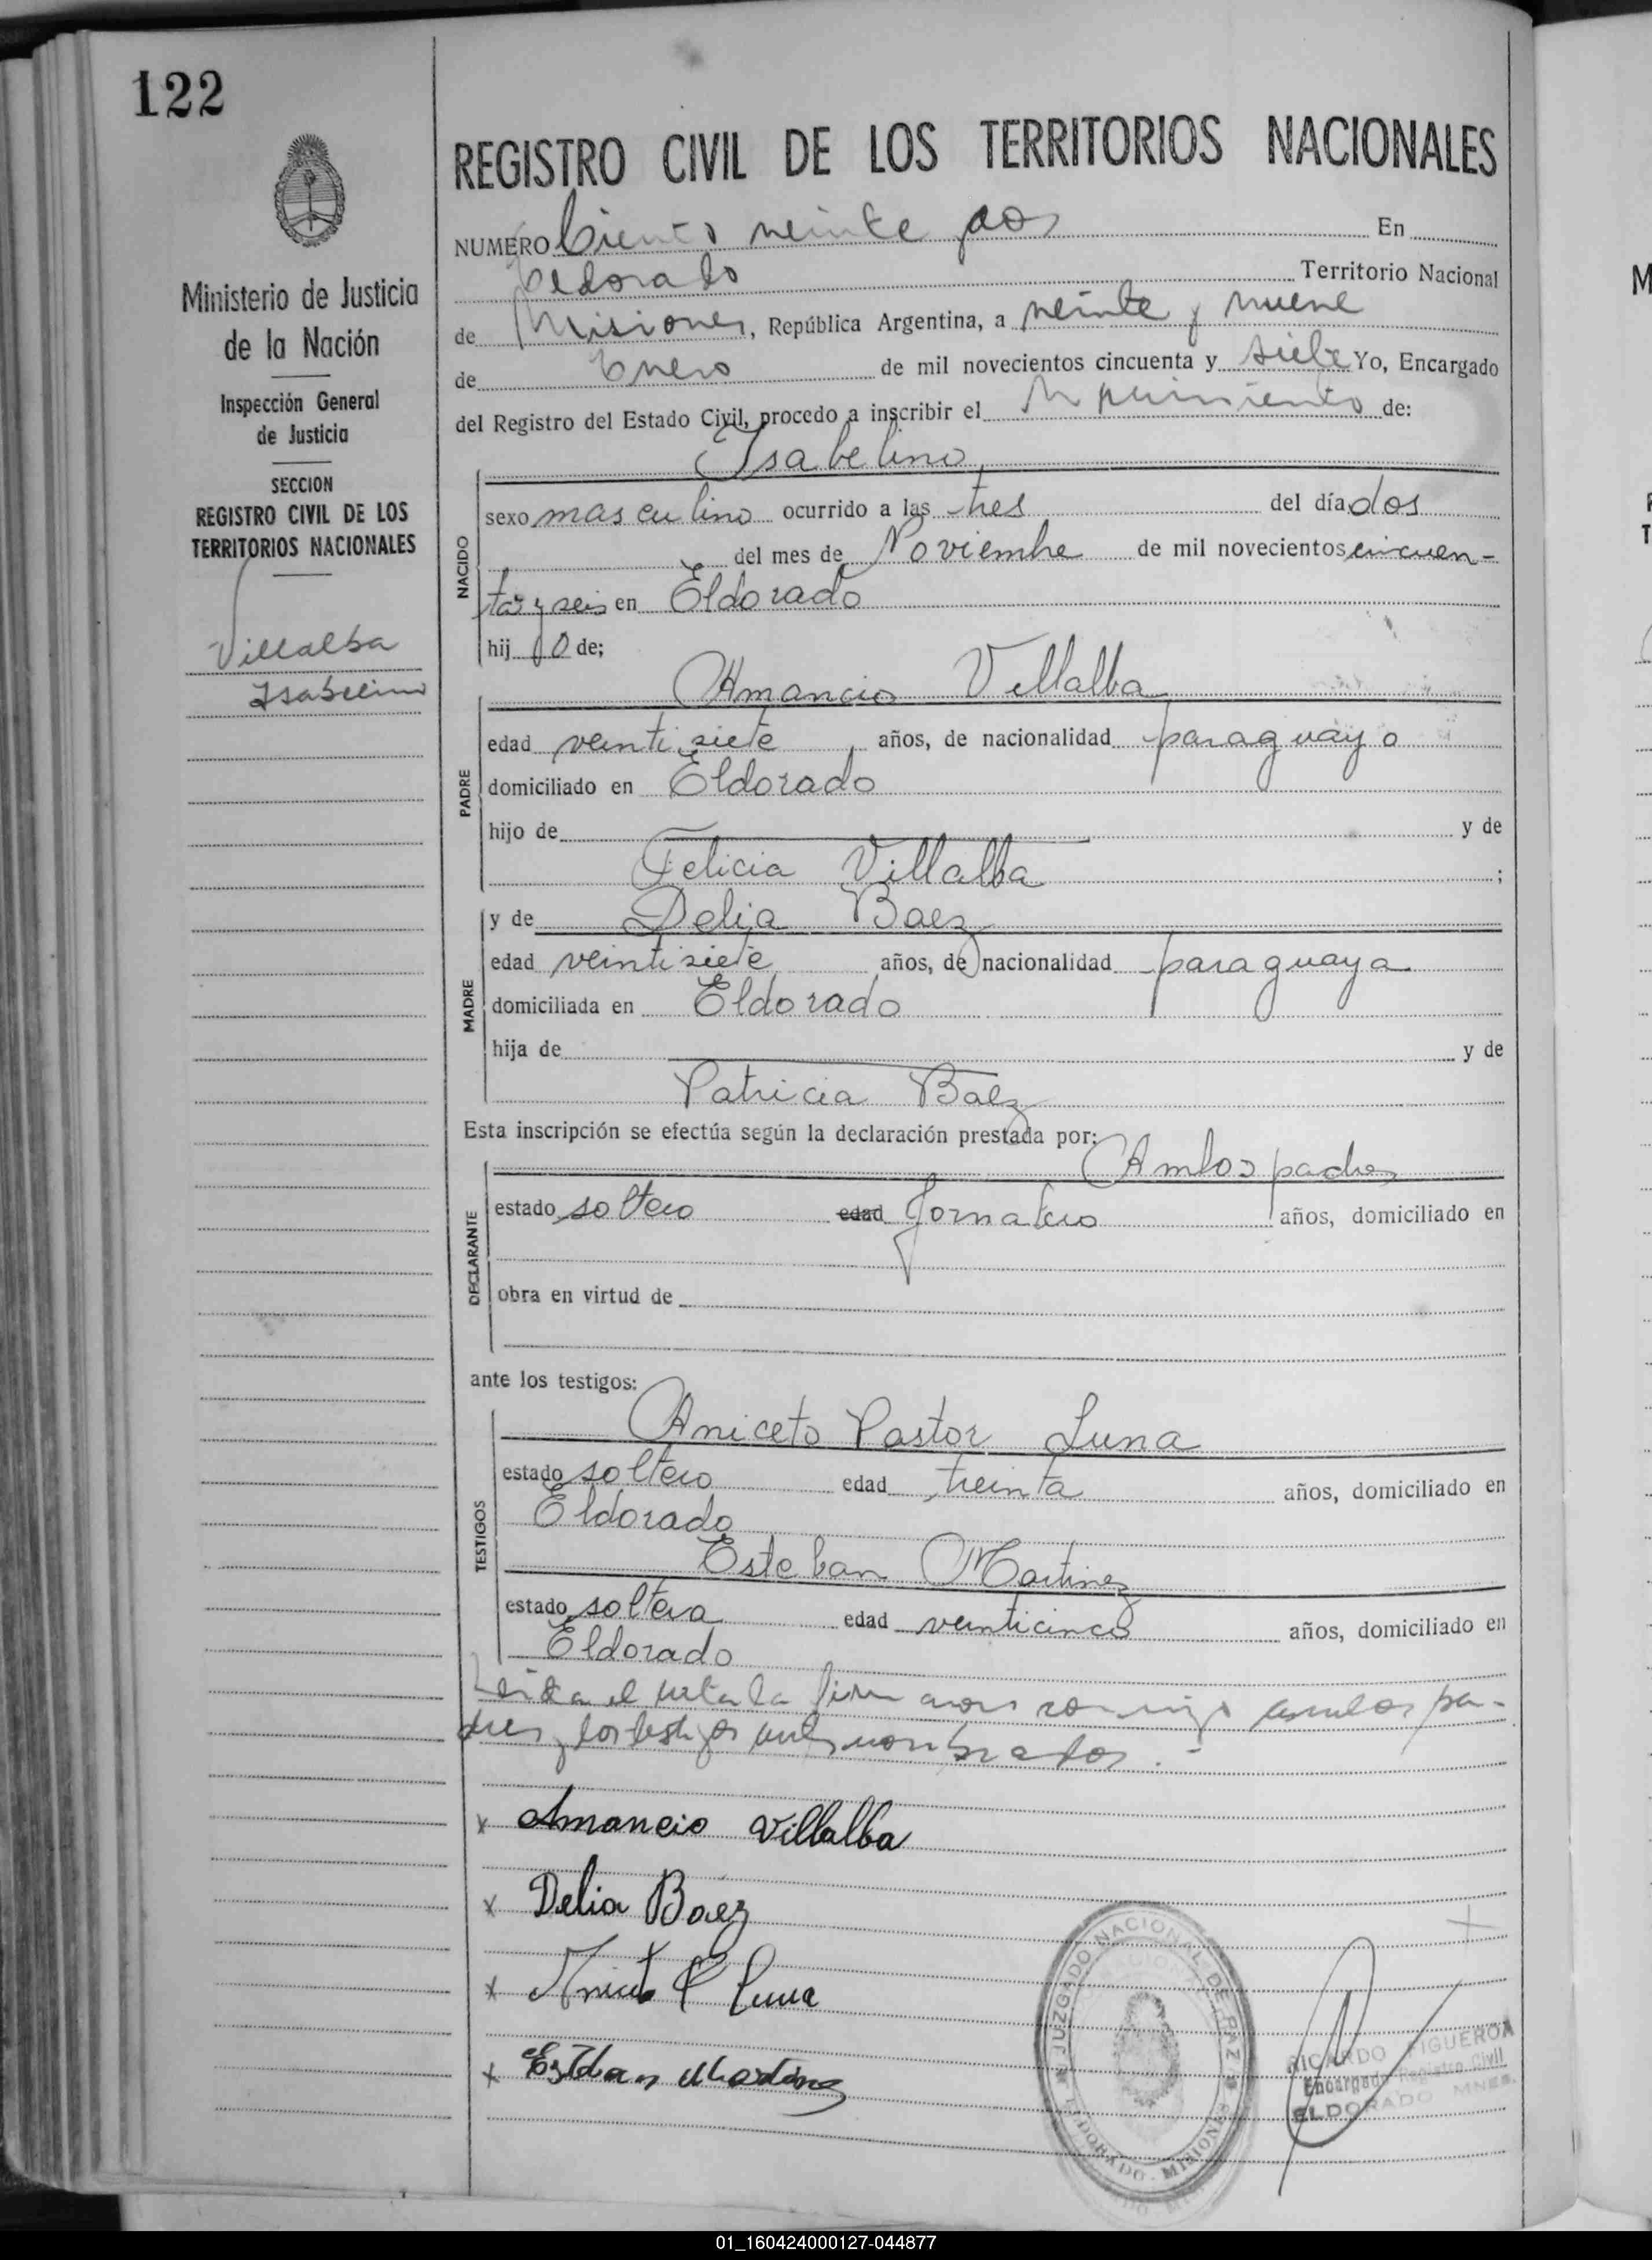 122
REGISTRO CIVIL DE LOS TERRITORIOS NACIONALES
Ministerio de Justicia
de la Nación
Inspección General
de Justicia
SECCION
REGISTRO CIVIL DE LOS
TERRITORIOS NACIONALES
Villalba
Isabelino
NUMERO Ciento veinte dos En
Eldorado Territorio Nacional
de Misiones, República Argentina, a veinte y nueve
de Enero de mil novecientos cincuenta y siete Yo, Encargado
del Registro del Estado Civil, procedo a inscribir el de:
Isabelino
NACIDO
sexo masculino ocurrido a las tres del día dos
del mes de Noviembre de mil novecientos cincuen-
ta y seis en Eldorado
hij o de;
Amancio Villalba
PADRE
edad veintisiete años, de nacionalidad paraguayo
domiciliado en Eldorado
hijo de y de
Felicia Villalba ;
MADRE
y de Delia Baez
edad veintisiete años, de nacionalidad paraguaya
domiciliada en Eldorado
hija de y de
Patricia Baez
Esta inscripción se efectúa según la declaración prestada por:
Ambos padres
DECLARANTE
estado soltero edad Jornalero años, domiciliado en
obra en virtud de
ante los testigos:
Aniceto Pastor Luna
TESTIGOS
estado soltero edad treinta años, domiciliado en
Eldorado
Esteban Martinez
estado soltera edad veinticinco años, domiciliado en
Eldorado
Leida el acta la firmaron conmigo ambos pa-
dres y los testigos nombrados.-
x Amancio Villalba
x Delia Baez
x Aniceto P Luna
x Esteban Martinez
JUZGADO NACIONAL DE PAZ
ELDORADO - MISIONES
RICARDO FIGUEROA
Encargado Registro Civil
ELDORADO MNES.
01_160424000127-044877